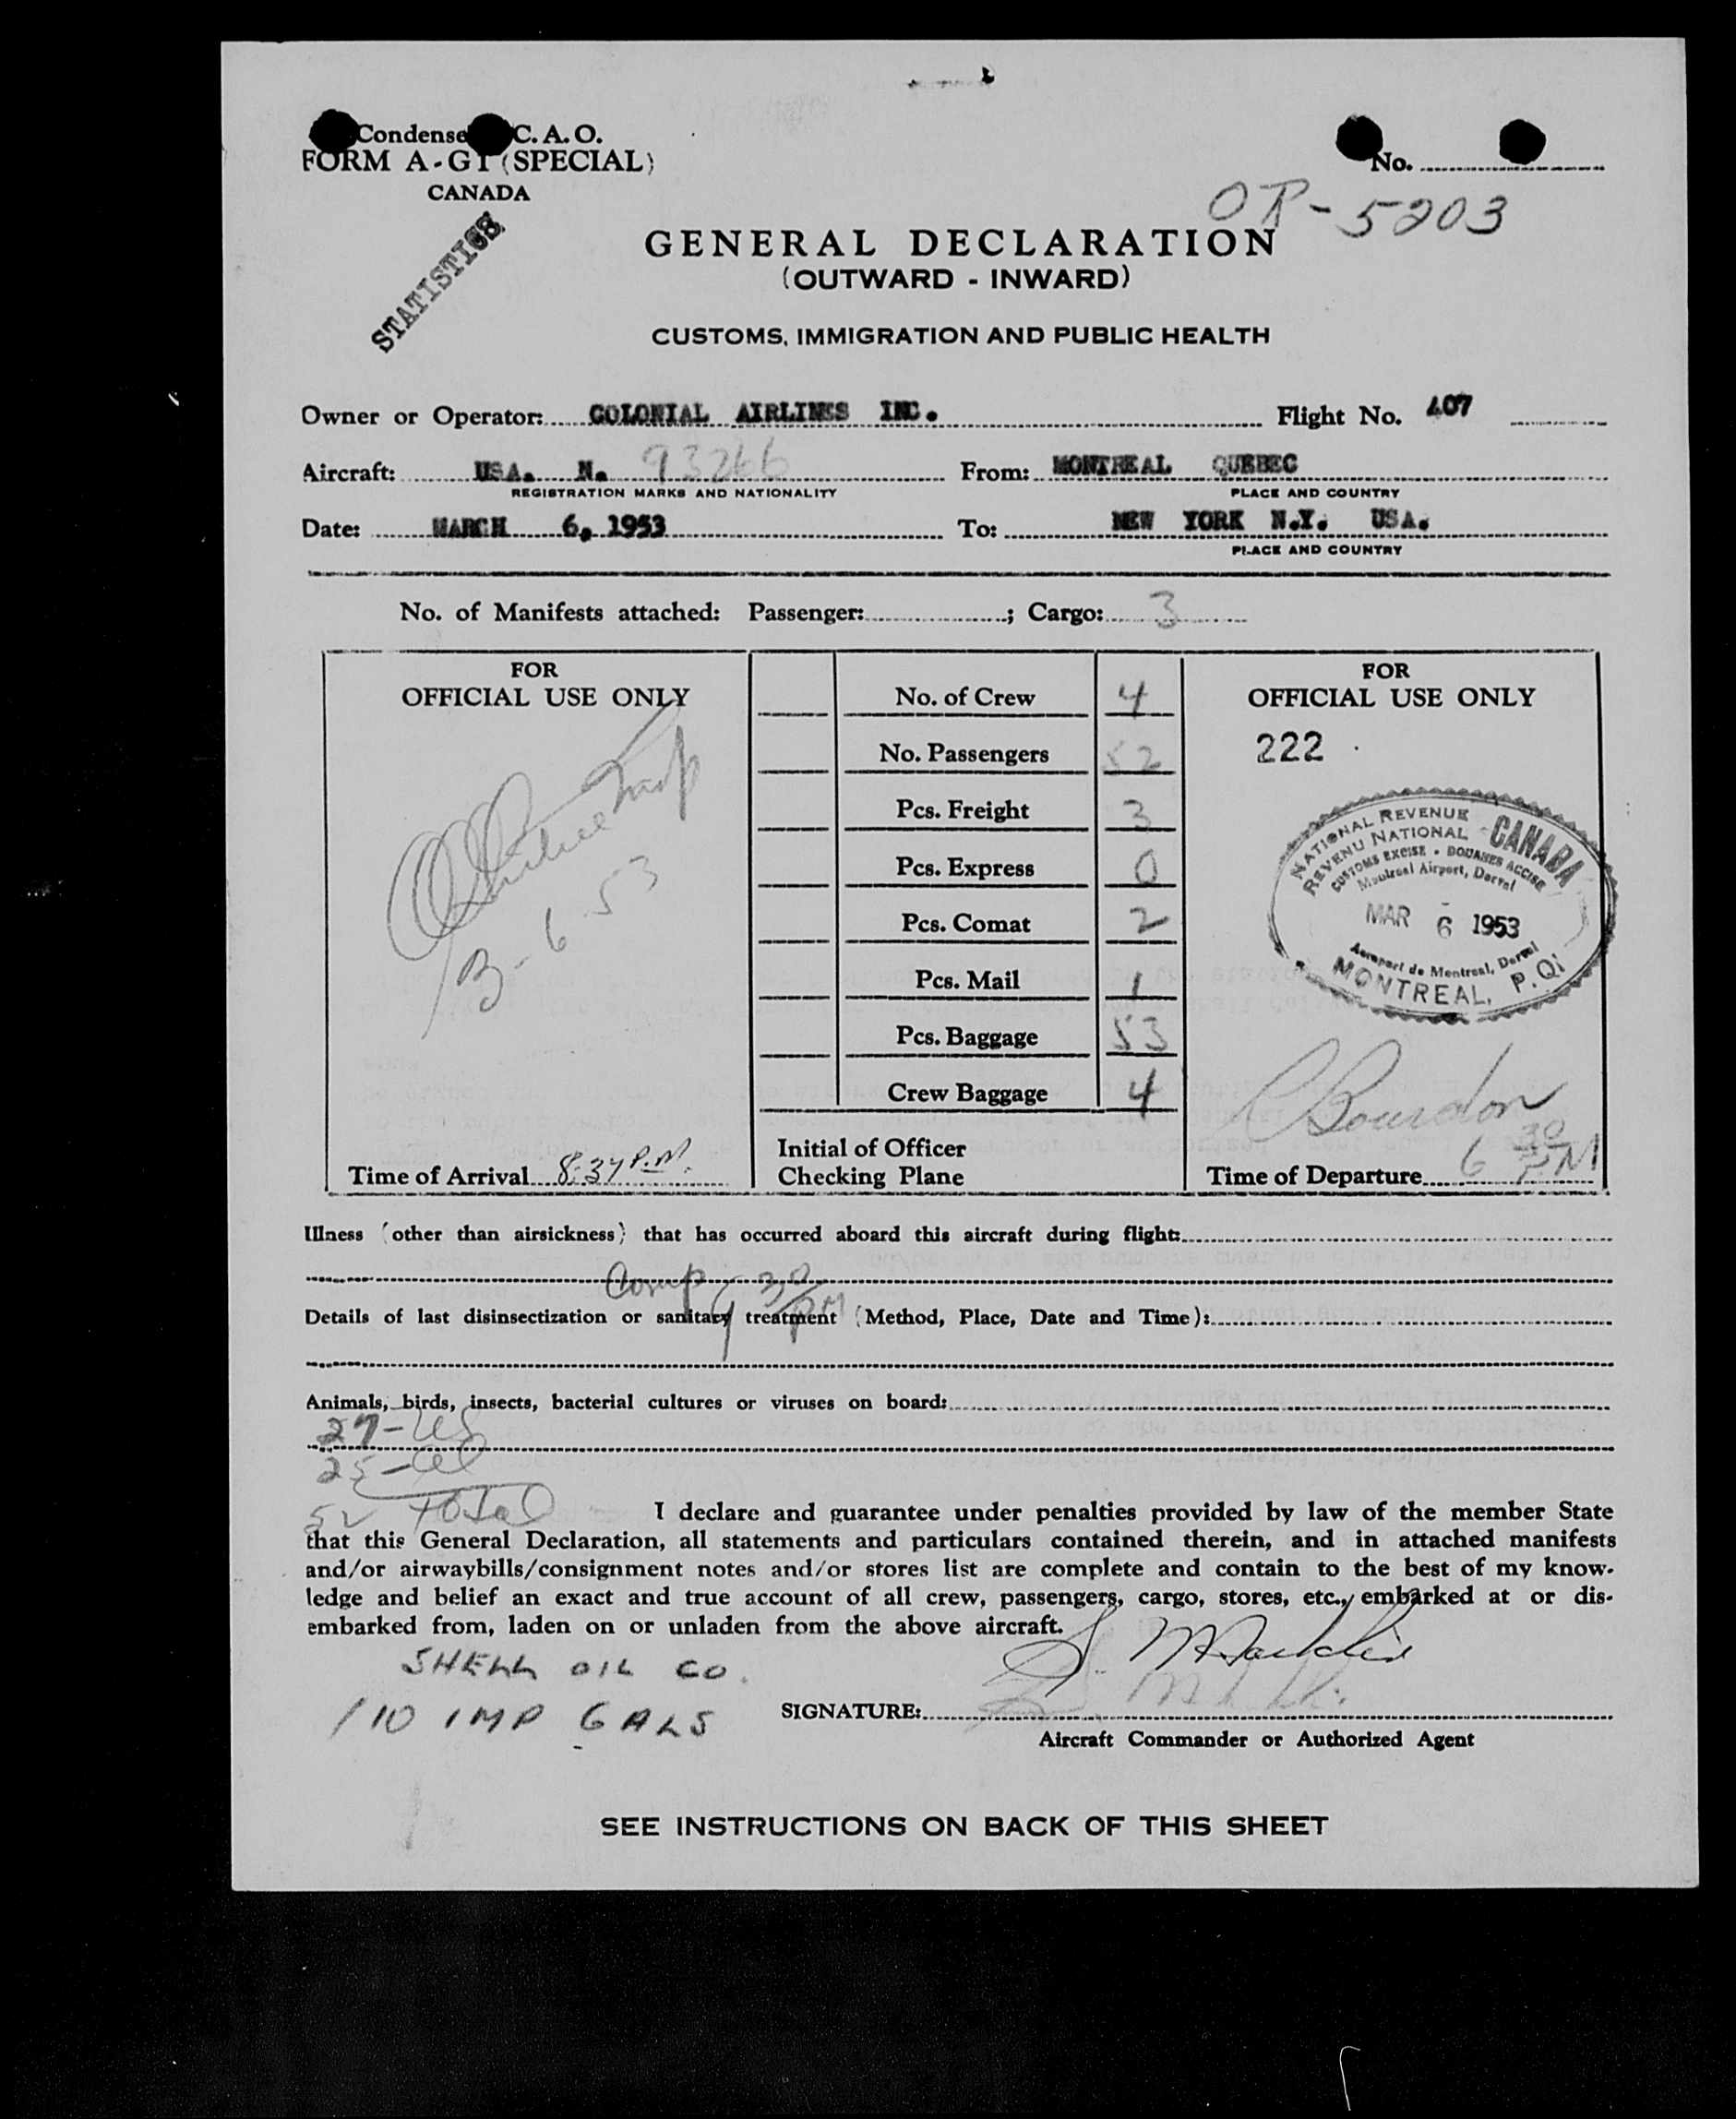 Condense C. A. O.
FORM A-G1 (SPECIAL)
CANADA
STATISTICS
No.
OR-5203
GENERAL DECLARATION
(OUTWARD - INWARD)
CUSTOMS, IMMIGRATION AND PUBLIC HEALTH
Owner or Operator: COLONIAL AIRLINES INC. Flight No. 407
Aircraft: USA. N. 93266 From: MONTREAL QUEBEC
REGISTRATION MARKS AND NATIONALITY PLACE AND COUNTRY
Date: MARCH 6, 1953 To: NEW YORK N.Y. USA.
PLACE AND COUNTRY
No. of Manifests attached: Passenger: ; Cargo: 3
FOR
OFFICIAL USE ONLY
3-6-53
Time of Arrival 8:37 P.M.
No. of Crew 4
No. Passengers 52
Pcs. Freight 3
Pcs. Express 0
Pcs. Comat 2
Pcs. Mail 1
Pcs. Baggage 53
Crew Baggage 4
Initial of Officer
Checking Plane
FOR
OFFICIAL USE ONLY
222
NATIONAL REVENUE
REVENU NATIONAL
CANADA
CUSTOMS EXCISE - DOUANES ACCISE
Montreal Airport, Dorval
MAR 6 1953
Aeroport de Montreal, Dorval
MONTREAL, P.Q.
Bourdon
Time of Departure 6 30 PM
Illness (other than airsickness) that has occurred aboard this aircraft during flight:
Comp 30 PM
Details of last disinsectization or sanitary treatment (Method, Place, Date and Time):
Animals, birds, insects, bacterial cultures or viruses on board:
27-US
25-
52 Total
I declare and guarantee under penalties provided by law of the member State
that this General Declaration, all statements and particulars contained therein, and in attached manifests
and/or airwaybills/consignment notes and/or stores list are complete and contain to the best of my know-
ledge and belief an exact and true account of all crew, passengers, cargo, stores, etc., embarked at or dis-
embarked from, laden on or unladen from the above aircraft.
SHELL OIL CO.
110 IMP GALS
SIGNATURE:
Aircraft Commander or Authorized Agent
SEE INSTRUCTIONS ON BACK OF THIS SHEET